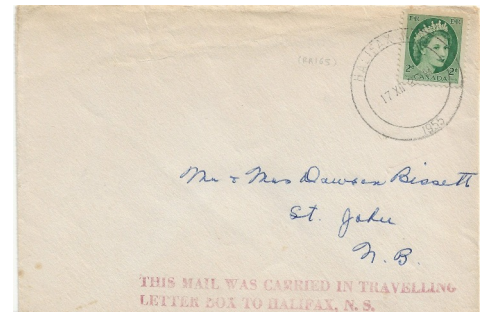 HALIFAX
17 XII
1955
2¢ 2¢
CANADA
Mr & Mrs Dawson Bissett
St. John
N. B.
THIS MAIL WAS CARRIED IN TRAVELLING
LETTER BOX TO HALIFAX, N. S.